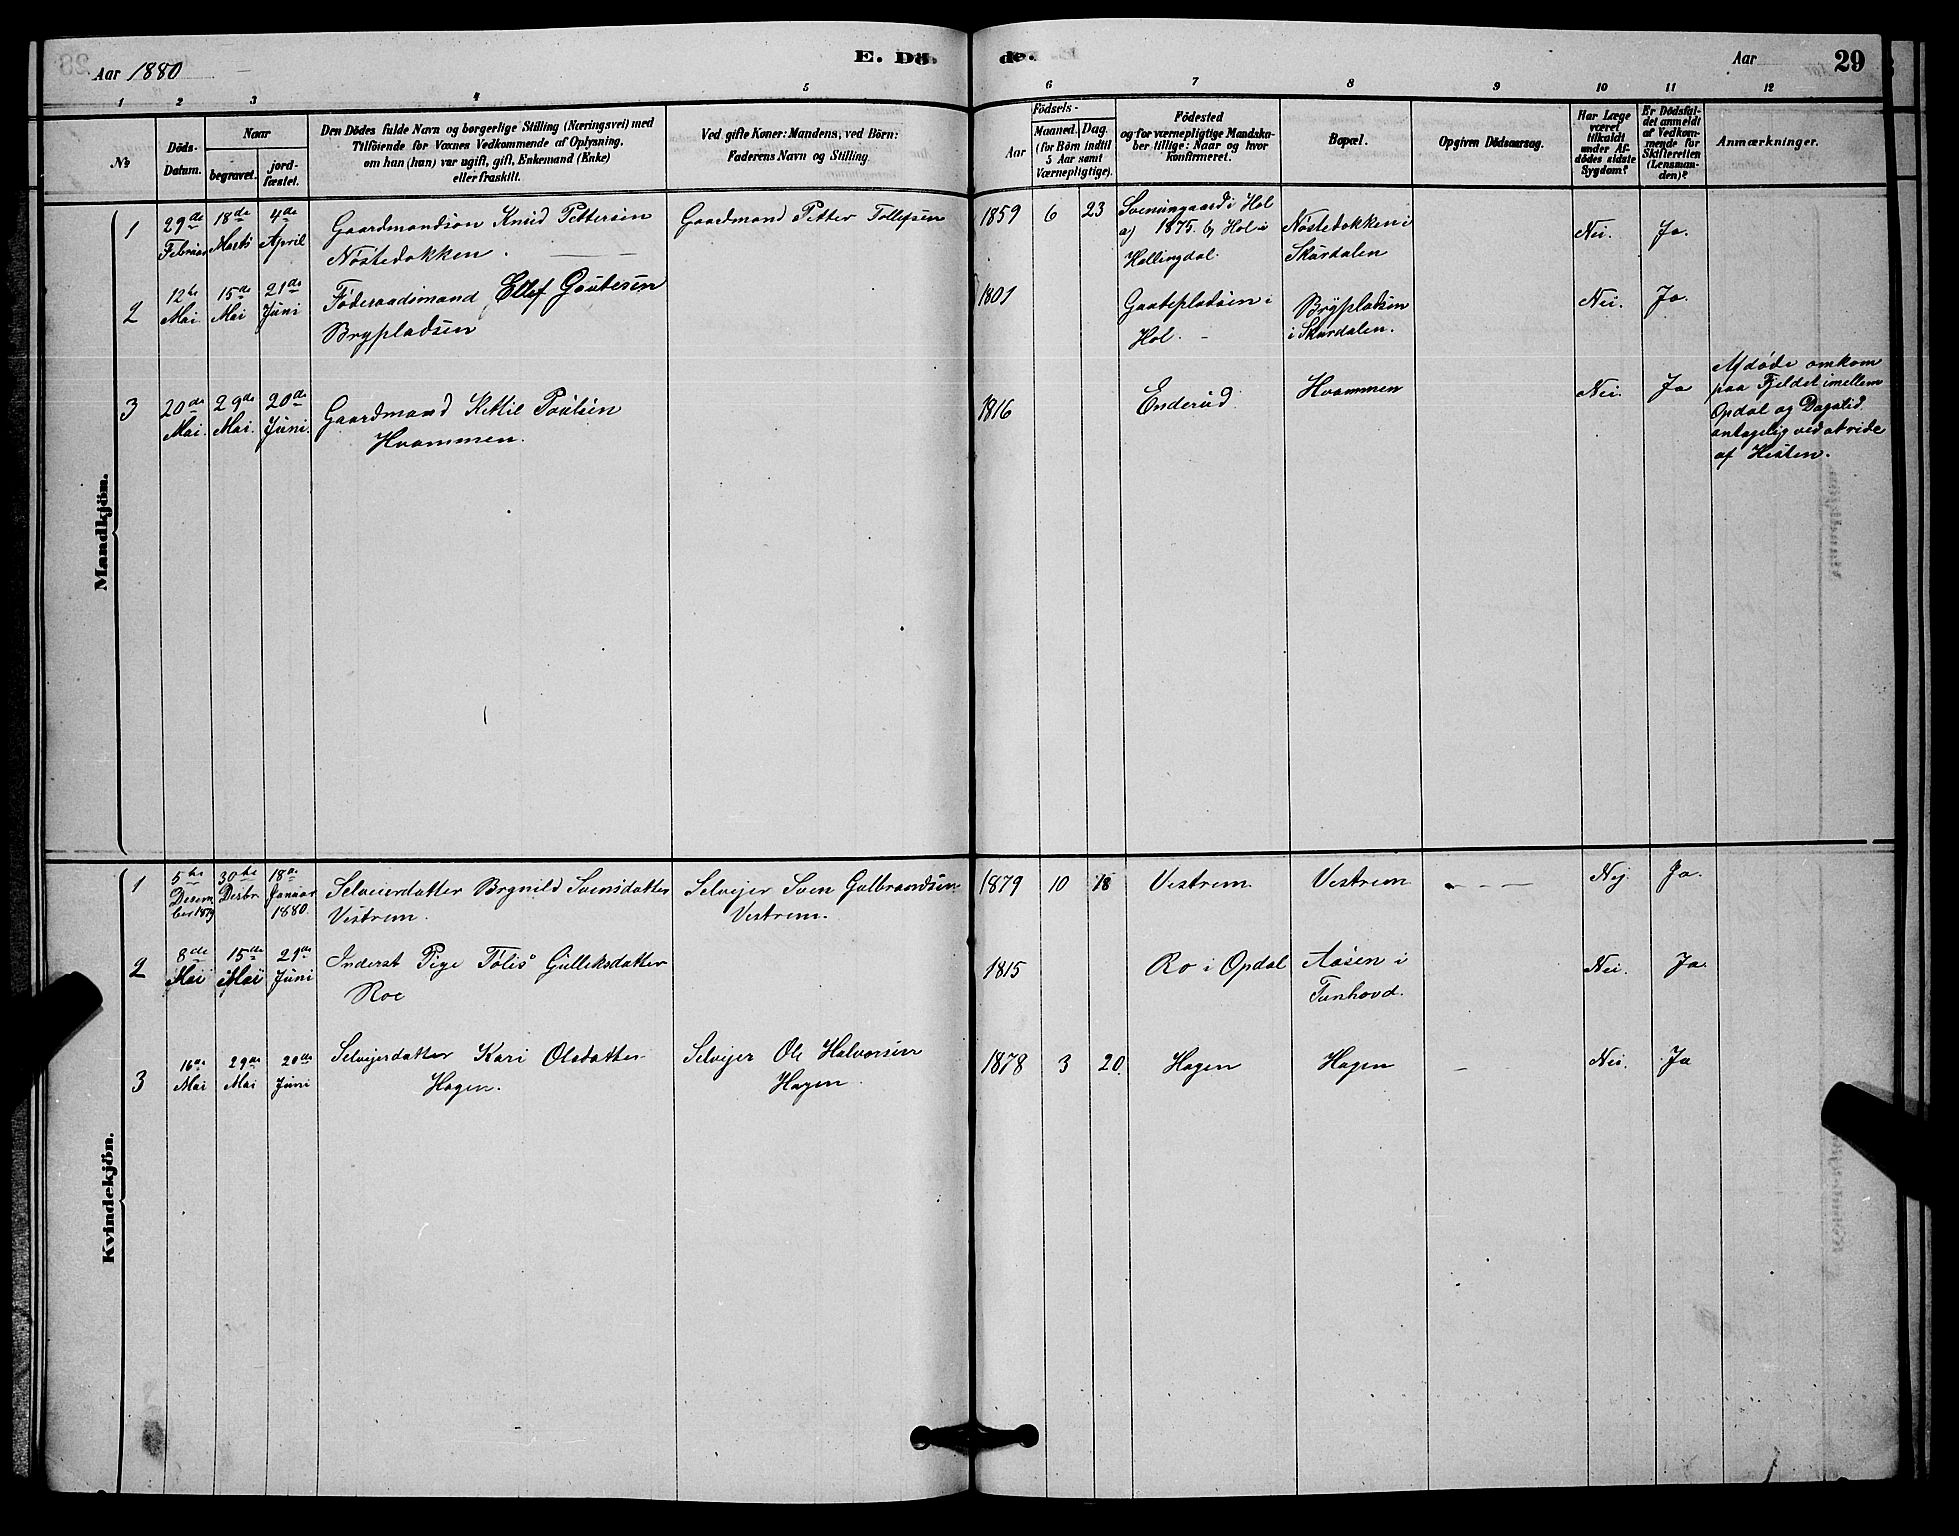 Aar 1880
E. Dö. de.
Aar 29
1 2 3 4 5 6 7 8 9 10 11 12
№
Döds-
Datum.
Naar
begravet.
jord-
fæstet.
Den Dödes fulde Navn og borgerlige Stilling (Næringsvei) med
Tilföiende for Voxnes Vedkommende af Oplysning,
om han (hun) var ugift, gift, Enkemand (Enke)
eller fraskilt.
Ved gifte Koner: Mandens, ved Börn:
Faderens Navn og Stilling.
Födsels-
Aar
Maaned. Dag.
(for Börn indtil
5 Aar samt
Værnepligtige).
Födested
og for værnepligtige Mandska-
ber tillige: Naar og hvor
konfirmeret.
Bopæl.
Opgiven Dödsaarsag.
Har Læge
været
tilkaldt
under Af-
dödes sidste
Sygdom?
Er Dödsfal-
det anmeldt
af Vedkom-
mende for
Skifteretten
(Lensman-
den)?
Anmærkninger.
Mandkjön.
1
29de
Februar
18de
Marts
4de
April
Gaardmandsön Knud Pettersen
Nöstebakken.
Gaardmand Petter Tollefsen
1859 6 23
Sveinungaard i Hol
a) 1875. b) Hol i
Hallingdal.
Nöstebakken i
Skurdalen
Nei. Ja.
2
12te
Mai.
15de
Mai
21de
Juni
Föderaadsmand Ellef Goutesen
Brypladsen
1801
Gautepladsen i
Hol. -
Brypladsen
i Skurdalen.
Nei. Ja.
3
20de
Mai.
29de
Mai.
20de
Juni.
Gaardmand Kittil Poulsen
Hvammen.
1816
Enderud
Hvammen
Nei. Ja
Afdöde omkom
paa Fjeldet imellem
Opdal og Dagalid
antagelig ved at ride
af Hesten.
Kvindekjön.
1
5te
Desem
ber 1879
30te
Desbr.
18de
Januar
1880.
Selveierdatter Bergnild Svensdatter
Vestrem.
Selveier Sven Gulbrandsen
Vestrem.
1879 10 18
Vestrem
Vestrem
Nej Ja.
2
8de
Mai
15de
Mai
21de
Juni
Inderst Pige Tolis Gulleksdatter
Roe
1815
Ro i Opdal
Aasen i
Tunhovd.
Nei. Ja.
3
16de
Mai
29de
Mai
20de
Juni
Selveierdatter Kari Olsdatter
Hagen.
Selveier Ole Halvorsen
Hagen.
1878 3 20.
Hagen
Hagen
Nei. Ja